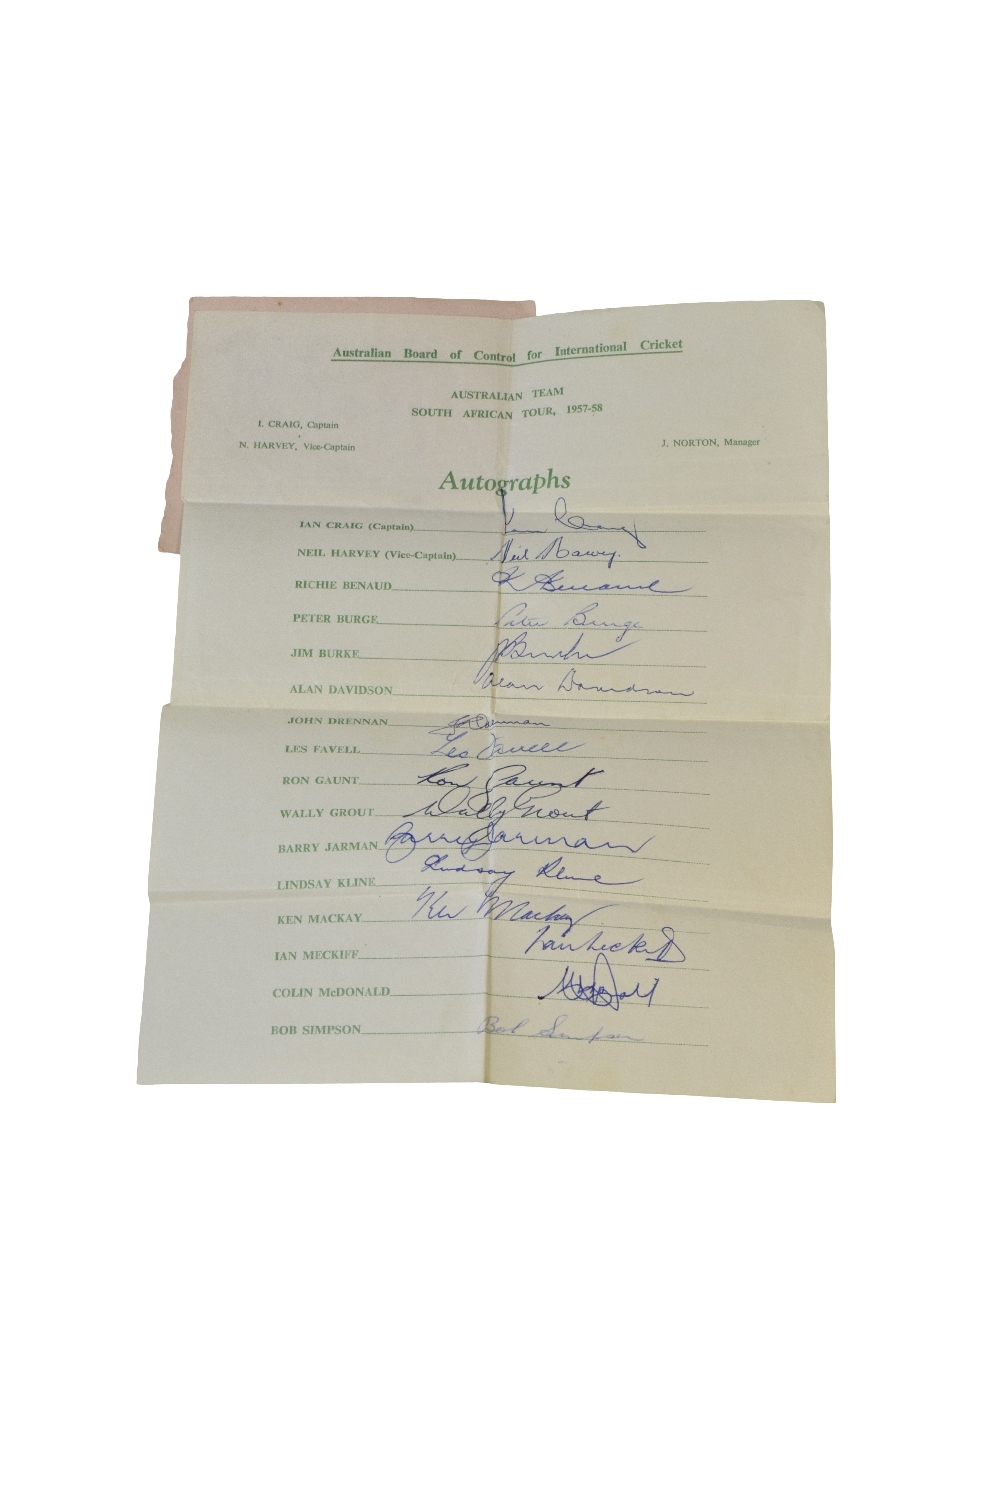 Australian Board of Control for International Cricket
AUSTRALIAN TEAM
SOUTH AFRICAN TOUR, 1957-58
I. CRAIG, Captain
N. HARVEY, Vice-Captain
J. NORTON, Manager
Autographs
IAN CRAIG (Captain) Ian Craig
NEIL HARVEY (Vice-Captain) Neil Harvey.
RICHIE BENAUD R Benaud
PETER BURGE Peter Burge
JIM BURKE J Burke
ALAN DAVIDSON Alan Davidson
JOHN DRENNAN J Drennan
LES FAVELL Les Favell
RON GAUNT Ron Gaunt
WALLY GROUT Wally Grout
BARRY JARMAN Barry Jarman
LINDSAY KLINE Lindsay Kline
KEN MACKAY Ken Mackay
IAN MECKIFF Ian Meckiff
COLIN McDONALD
BOB SIMPSON Bob Simpson